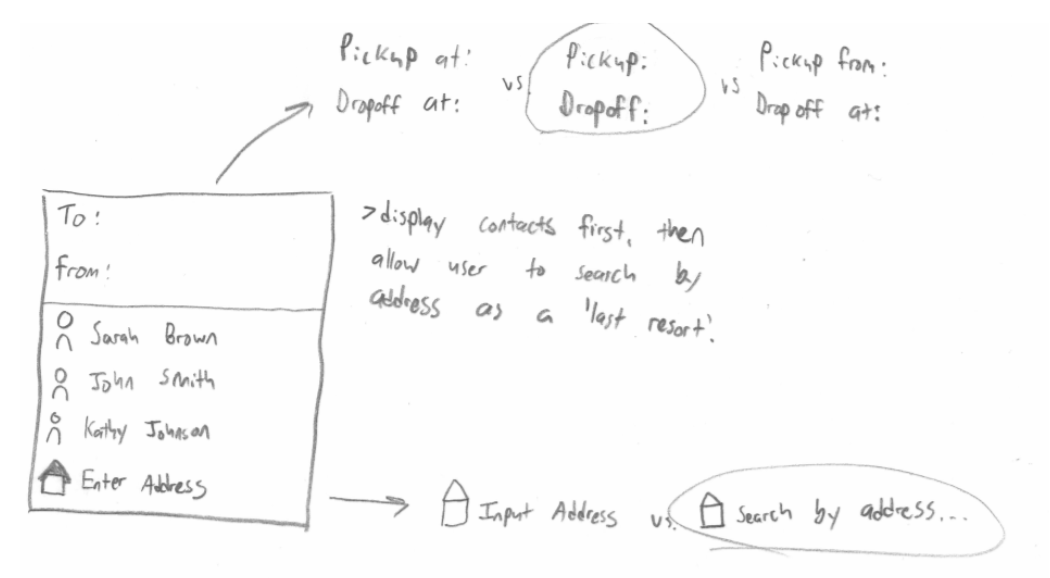 Pickup at:
Dropoff at:
vs
Pickup:
Dropoff:
vs
Pickup from:
Dropoff at:
To:
from:
Sarah Brown
John Smith
Kathy Johnson
Enter Address
>display contacts first, then
allow user to search by
address as a 'last resort'.
Input Address vs. Search by address...